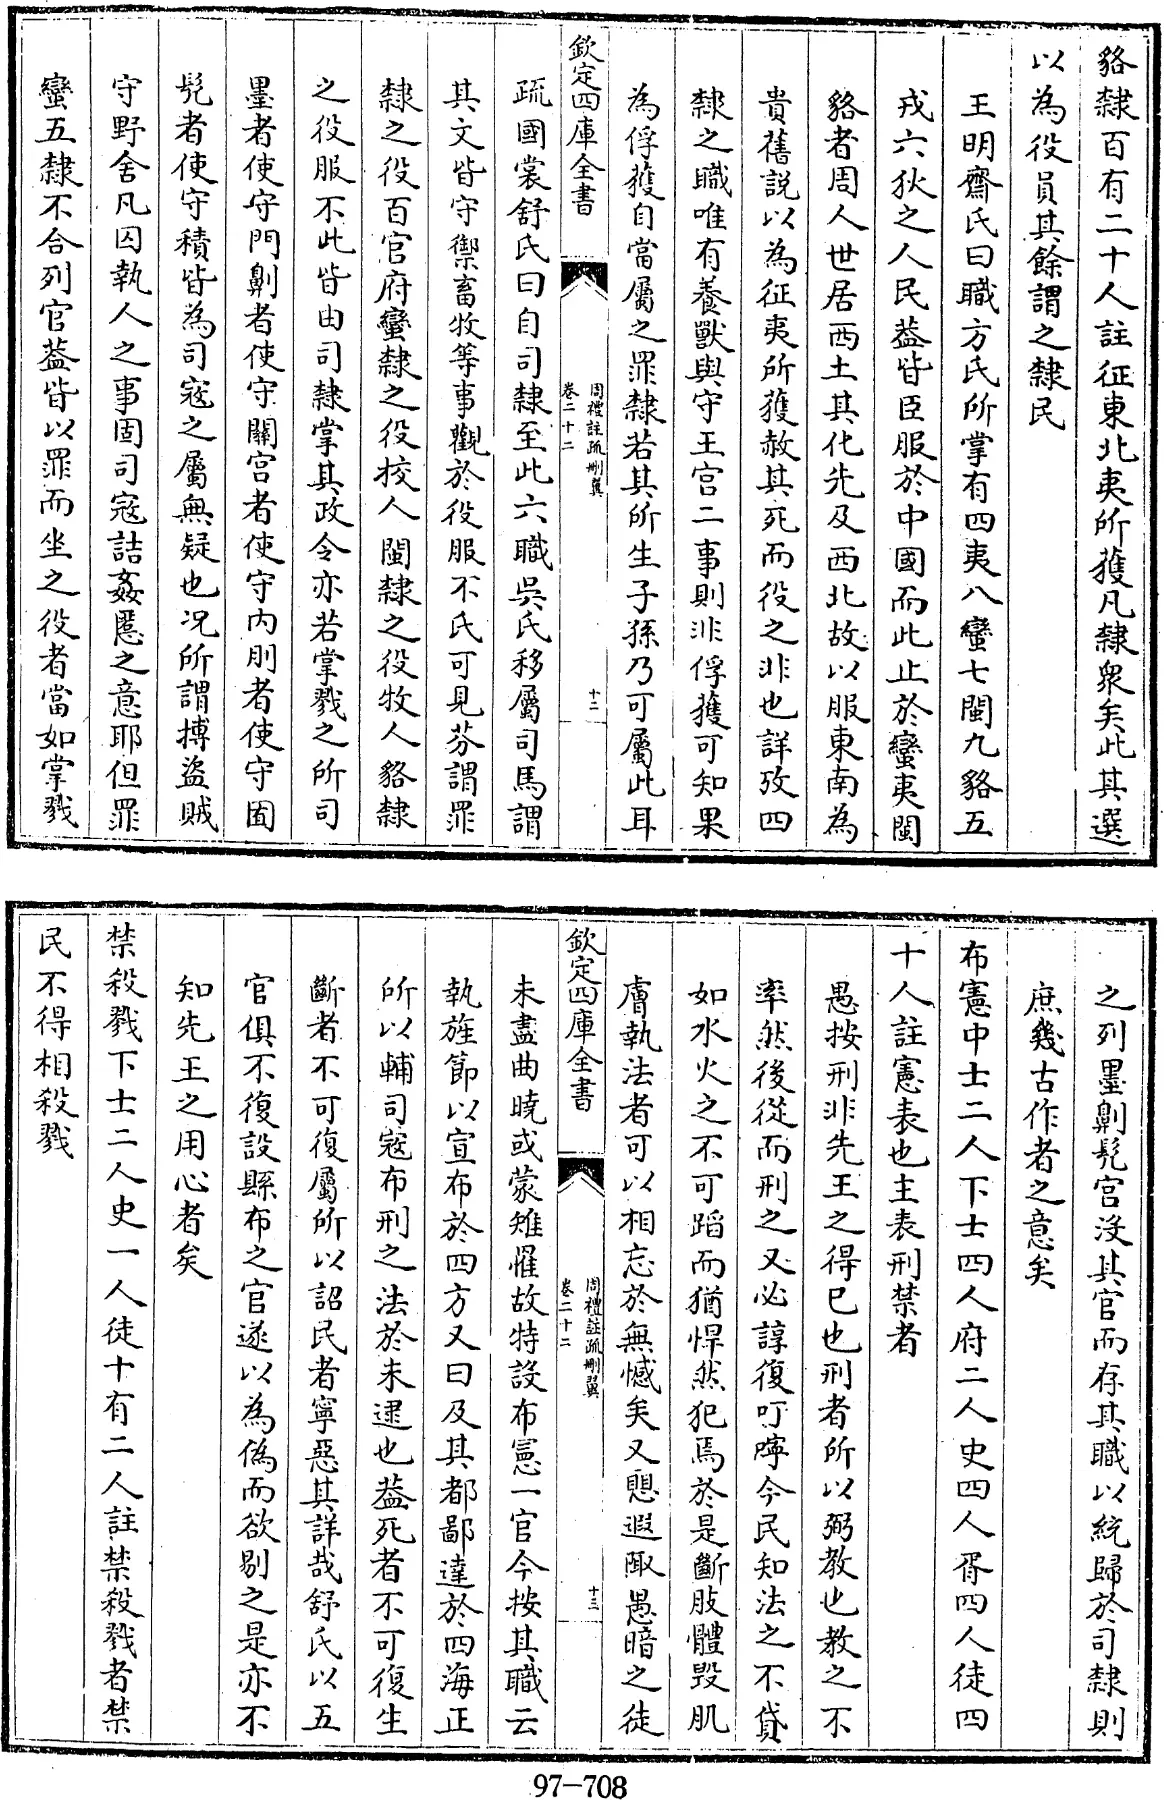 貉隸百有二十人註征東北夷所獲凡隸衆矣此其選
以為役員其餘謂之隸民
王明齋氏曰職方氏所掌有四夷八蠻七閩九貉五
戎六狄之人民葢皆臣服於中國而此止於蠻夷閩
貉者周人世居西土其化先及西北故以服東南為
貴舊説以為征夷所獲赦其死而役之非也詳攷四
隸之職唯有養獸與守王宫二事則非俘獲可知果
為俘獲自當屬之罪隸若其所生子孫乃可屬此耳
欽定四庫全書
周禮註疏刪翼
卷二十二
十二
疏國裳舒氏曰自司隸至此六職吳氏移屬司馬謂
其文皆守禦畜牧等事觀於役服不氏可見芬謂罪
隸之役百官府蠻隸之役校人閩隸之役牧人貉隸
之役服不此皆由司隸掌其政令亦若掌戮之所司
墨者使守門劓者使守關宫者使守内刖者使守囿
髠者使守積皆為司寇之屬無疑也况所謂搏盗賊
守野舍凡囚執人之事固司寇詰姦慝之意耶但罪
蠻五隸不合列官葢皆以罪而坐之役者當如掌戮
之列墨劓髠宫沒其官而存其職以統歸於司隸則
庶幾古作者之意矣
布憲中士二人下士四人府二人史四人胥四人徒四
十人註憲表也主表刑禁者
愚按刑非先王之得已也刑者所以弼教也教之不
率然後從而刑之又必諄復叮嚀今民知法之不貸
如水火之不可蹈而猶悍然犯焉於是斷肢體毀肌
膚執法者可以相忘於無憾矣又思遐陬愚暗之徒
欽定四庫全書
周禮註疏刪翼
卷二十二
十三
未盡曲曉或蒙雉罹故特設布憲一官今按其職云
執旌節以宣布於四方又曰及其都鄙達於四海正
所以輔司寇布刑之法於未逮也葢死者不可復生
斷者不可復屬所以詔民者寧惡其詳哉舒氏以五
官俱不復設縣布之官遂以為偽而欲剔之是亦不
知先王之用心者矣
禁殺戮下士二人史一人徒十有二人註禁殺戮者禁
民不得相殺戮
97-708